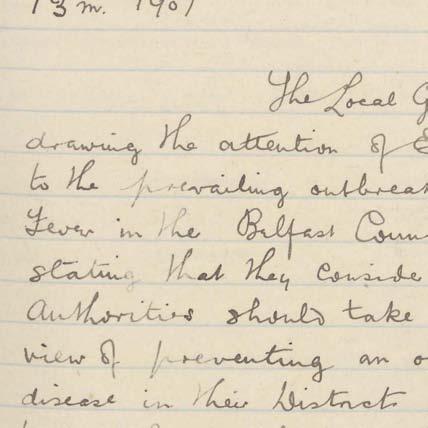 13 m. 1901
The Local G
drawing the attention of E
to the prevailing outbreak
Fever in the Belfast Coun
stating that they conside
Authorities should take
view of preventing an o
disease in their Districts